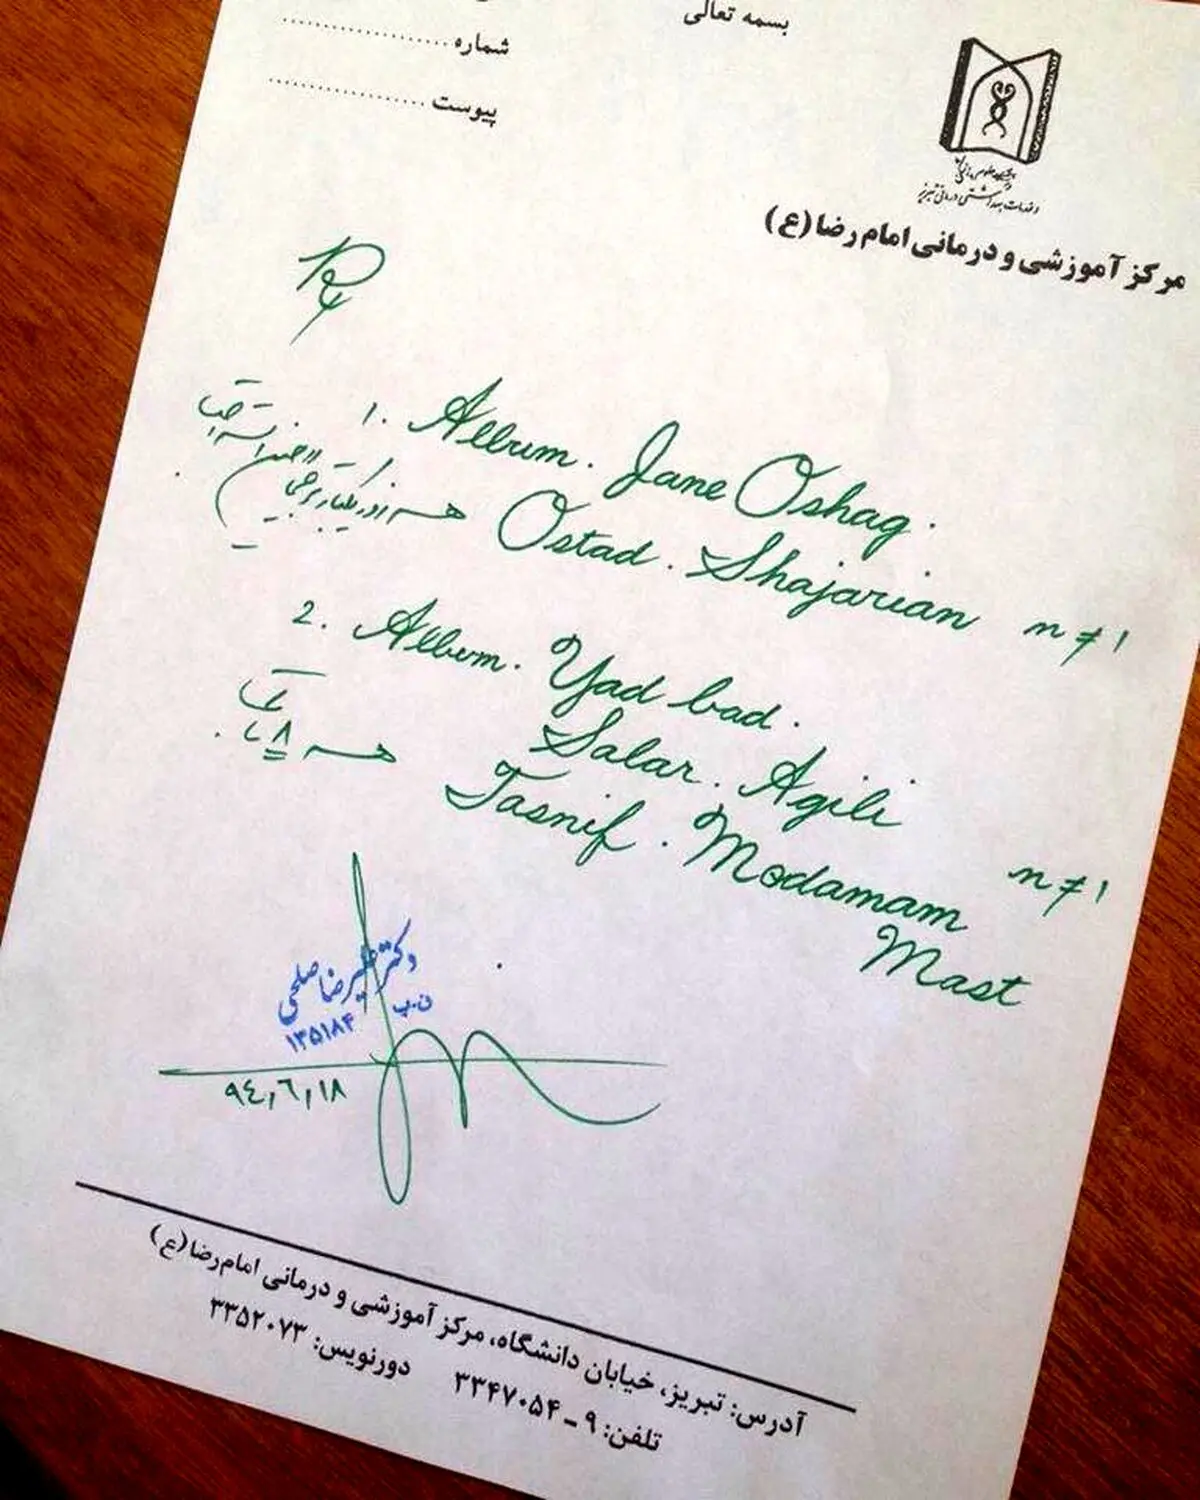 بسمه تعالی
شماره ....................
پیوست ....................
و خدمات بهداشتی درمانی تبریز
مرکز آموزشی و درمانی امام رضا (ع)
1. Album. Jane Oshag.
Ostad. Shajarian n ≠ 1
هر روز یکبار ترجیحا
2. Album. Yad bad.
Salar. Agili
Tasnif. Modamam n ≠ 1
Mast
هر ۸
دکتر علیرضا صلحی
ن.پ ۱۳۵۱۸۴
۹٤,٦,۱۸
آدرس: تبریز، خیابان دانشگاه، مرکز آموزشی و درمانی امام‌رضا (ع)
تلفن: ۹ ـ ۳۳۴۷۰۵۴ دورنویس: ۳۳۵۲۰۷۳